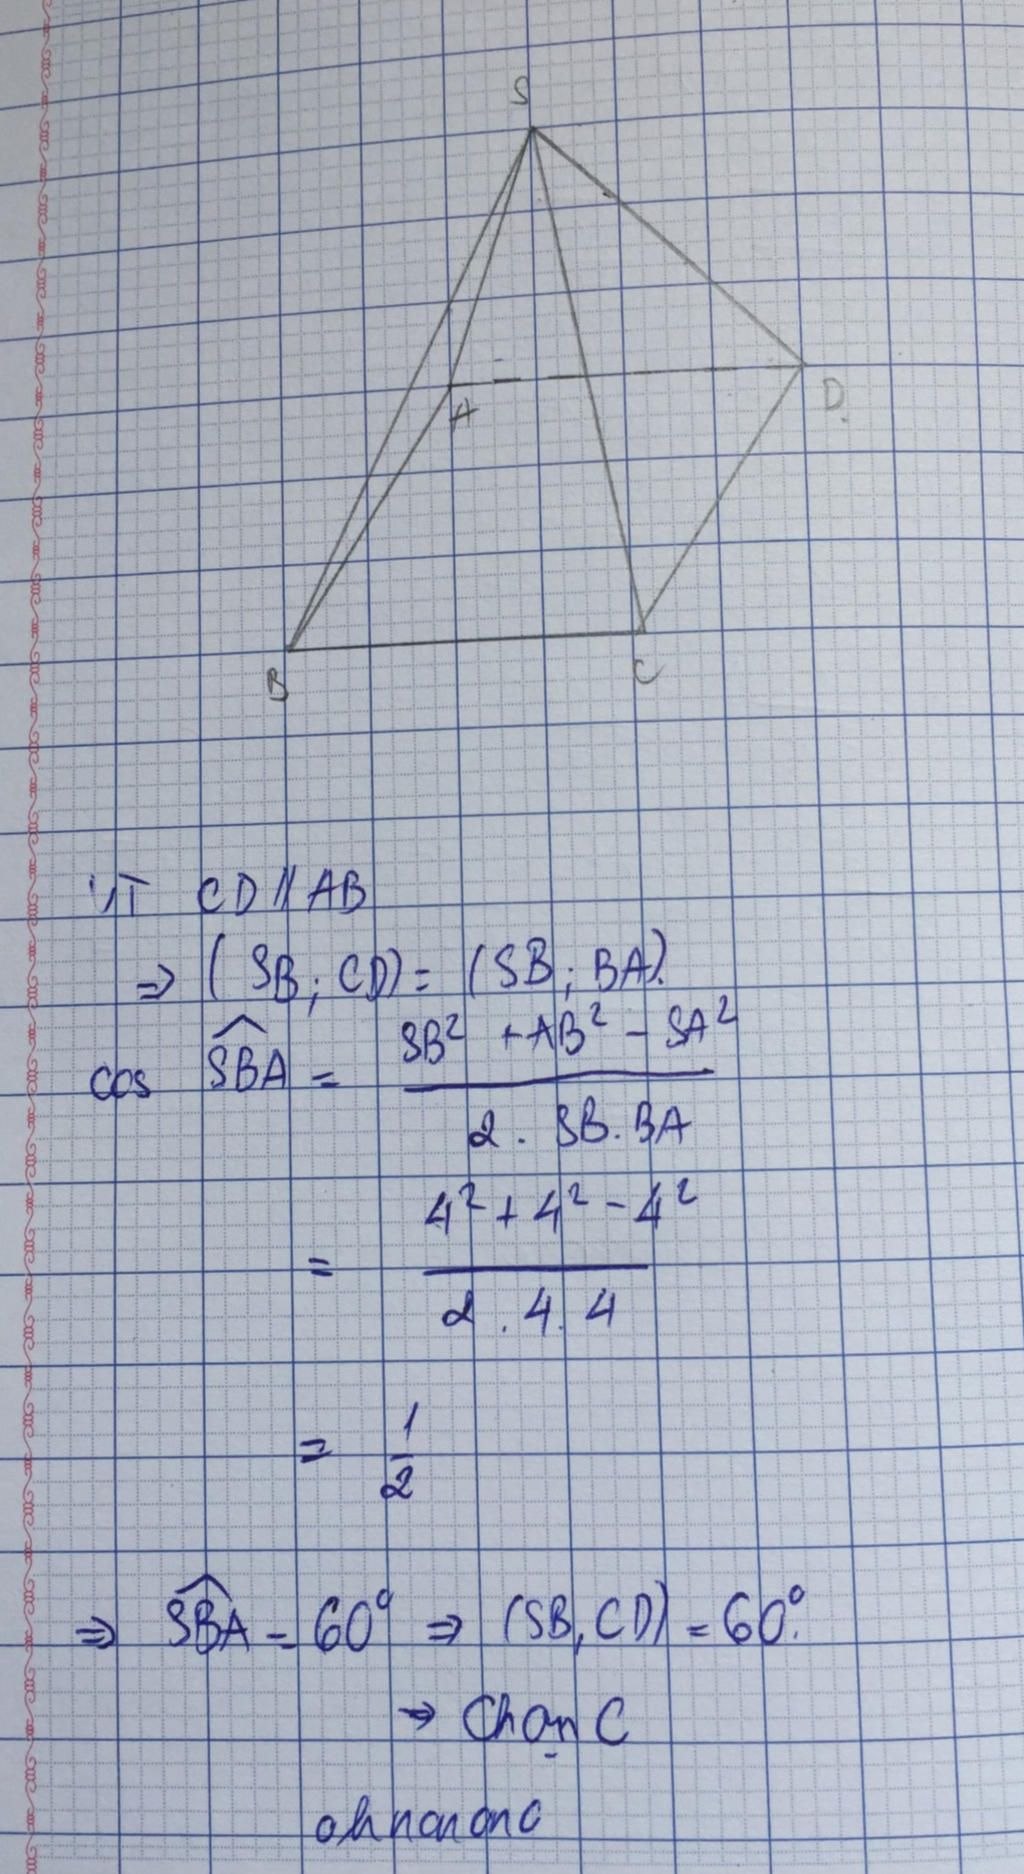 S
A
D.
B
C
VT CD // AB
⇒ (SB; CD) = (SB; BA).
cos SBA = SB² + AB² - SA² / 2 . SB . BA
= 4² + 4² - 4² / 2 . 4 . 4
= 1/2
⇒ SBA = 60° ⇒ (SB, CD) = 60°.
→ Chọn C